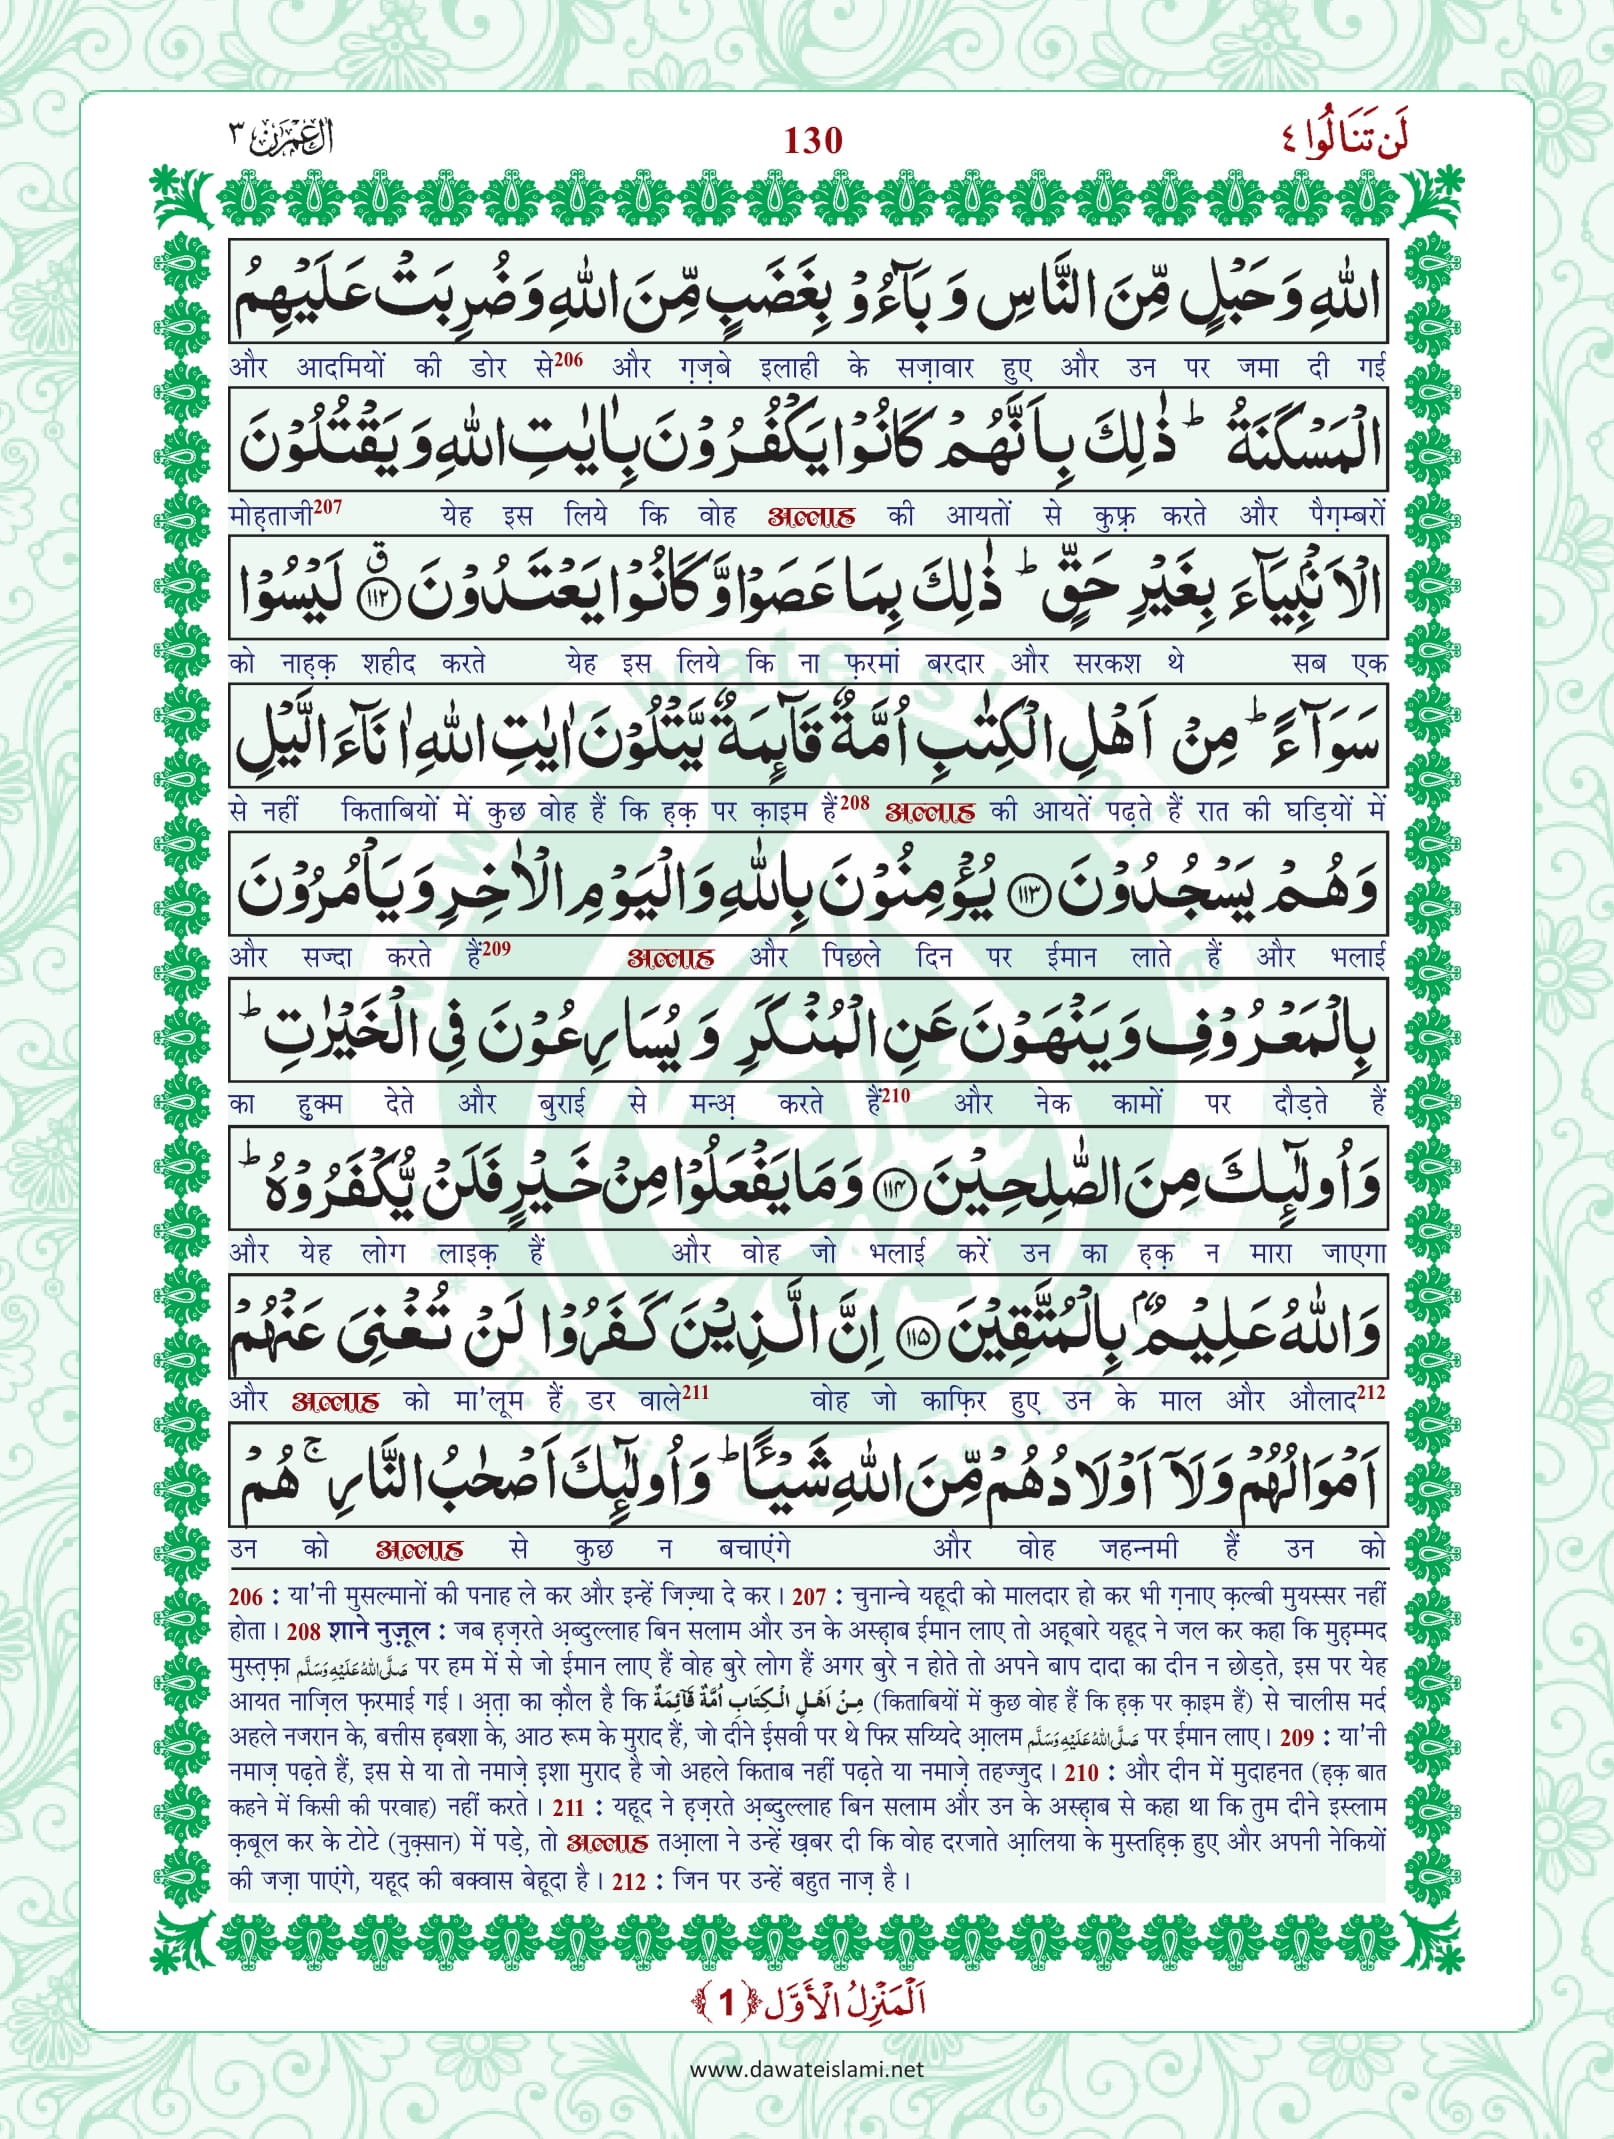 اٰل عمرٰن ٣
130
لَنْ تَنَالُوا ٤
اللّٰهِ وَحَبْلٍ مِّنَ النَّاسِ وَ بَآءُوْ بِغَضَبٍ مِّنَ اللّٰهِ وَضُرِبَتْ عَلَیْهِمُ
और आदमियों की डोर से206 और ग़ज़बे इलाही के सज़ावार हुए और उन पर जमा दी गई
الْمَسْكَنَةُ ؕ ذٰلِكَ بِاَنَّهُمْ كَانُوْا یَكْفُرُوْنَ بِاٰیٰتِ اللّٰهِ وَ یَقْتُلُوْنَ
मोह़ताजी207 येह इस लिये कि वोह अल्लाह की आयतों से कुफ़्र करते और पैग़म्बरों
الْاَنْۢبِیَآءَ بِغَیْرِ حَقٍّ ؕ ذٰلِكَ بِمَا عَصَوْا وَّ كَانُوْا یَعْتَدُوْنَ ۗۙ﴿۱۱۲﴾ لَیْسُوْا
को नाह़क़ शहीद करते येह इस लिये कि ना फ़रमां बरदार और सरकश थे सब एक
سَوَآءً ؕ مِنْ اَهْلِ الْكِتٰبِ اُمَّةٌ قَآىِٕمَةٌ یَّتْلُوْنَ اٰیٰتِ اللّٰهِ اٰنَآءَ الَّیْلِ
से नहीं किताबियों में कुछ वोह हैं कि ह़क़ पर क़ाइम हैं208 अल्लाह की आयतें पढ़ते हैं रात की घड़ियों में
وَ هُمْ یَسْجُدُوْنَ ﴿۱۱۳﴾ یُؤْمِنُوْنَ بِاللّٰهِ وَ الْیَوْمِ الْاٰخِرِ وَ یَاْمُرُوْنَ
और सज्दा करते हैं209 अल्लाह और पिछले दिन पर ईमान लाते हैं और भलाई
بِالْمَعْرُوْفِ وَ یَنْهَوْنَ عَنِ الْمُنْكَرِ وَ یُسَارِعُوْنَ فِی الْخَیْرٰتِ ؕ
का हुक्म देते और बुराई से मन्अ़ करते हैं210 और नेक कामों पर दौड़ते हैं
وَ اُولٰٓىِٕكَ مِنَ الصّٰلِحِیْنَ ﴿۱۱۴﴾ وَ مَا یَفْعَلُوْا مِنْ خَیْرٍ فَلَنْ یُّكْفَرُوْهُ ؕ
और येह लोग लाइक़ हैं और वोह जो भलाई करें उन का ह़क़ न मारा जाएगा
وَ اللّٰهُ عَلِیْمٌۢ بِالْمُتَّقِیْنَ ﴿۱۱۵﴾ اِنَّ الَّذِیْنَ كَفَرُوْا لَنْ تُغْنِیَ عَنْهُمْ
और अल्लाह को मा'लूम हैं डर वाले211 वोह जो काफ़िर हुए उन के माल और औलाद212
اَمْوَالُهُمْ وَ لَاۤ اَوْلَادُهُمْ مِّنَ اللّٰهِ شَیْــٴًـا ؕ وَ اُولٰٓىِٕكَ اَصْحٰبُ النَّارِ ۚ هُمْ
उन को अल्लाह से कुछ न बचाएंगे और वोह जहन्नमी हैं उन को
206 : या'नी मुसल्मानों की पनाह ले कर और इन्हें जिज़्या दे कर। 207 : चुनान्चे यहूदी को मालदार हो कर भी ग़नाए क़ल्बी मुयस्सर नहीं
होता। 208 शाने नुज़ूल : जब ह़ज़रते अ़ब्दुल्लाह बिन सलाम और उन के अस्ह़ाब ईमान लाए तो अह़बारे यहूद ने जल कर कहा कि मुह़म्मद
मुस्त़फ़ा صَلَّى اللهُ عَلَيْهِ وَسَلَّم पर हम में से जो ईमान लाए हैं वोह बुरे लोग हैं अगर बुरे न होते तो अपने बाप दादा का दीन न छोड़ते, इस पर येह
आयत नाज़िल फ़रमाई गई। अ़त़ा का क़ौल है कि مِنْ اَهْلِ الْكِتَابِ اُمَّةٌ قَآئِمَةٌ (किताबियों में कुछ वोह हैं कि ह़क़ पर क़ाइम हैं) से चालीस मर्द
अहले नजरान के, बत्तीस ह़बशा के, आठ रूम के मुराद हैं, जो दीने ई़सवी पर थे फिर सय्यिदे आ़लम صَلَّى اللهُ عَلَيْهِ وَسَلَّم पर ईमान लाए। 209 : या'नी
नमाज़ पढ़ते हैं, इस से या तो नमाज़े इशा मुराद है जो अहले किताब नहीं पढ़ते या नमाज़े तहज्जुद। 210 : और दीन में मुदाहनत (ह़क़ बात
कहने में किसी की परवाह) नहीं करते। 211 : यहूद ने ह़ज़रते अ़ब्दुल्लाह बिन सलाम और उन के अस्ह़ाब से कहा था कि तुम दीने इस्लाम
क़बूल कर के टोटे (नुक़्सान) में पड़े, तो अल्लाह तआ़ला ने उन्हें ख़बर दी कि वोह दरजाते आ़लिया के मुस्तह़िक़ हुए और अपनी नेकियों
की जज़ा पाएंगे, यहूद की बक्वास बेहूदा है। 212 : जिन पर उन्हें बहुत नाज़ है।
اَلْمَنْزِلُ الْاَوَّل ﴿1﴾
www.dawateislami.net